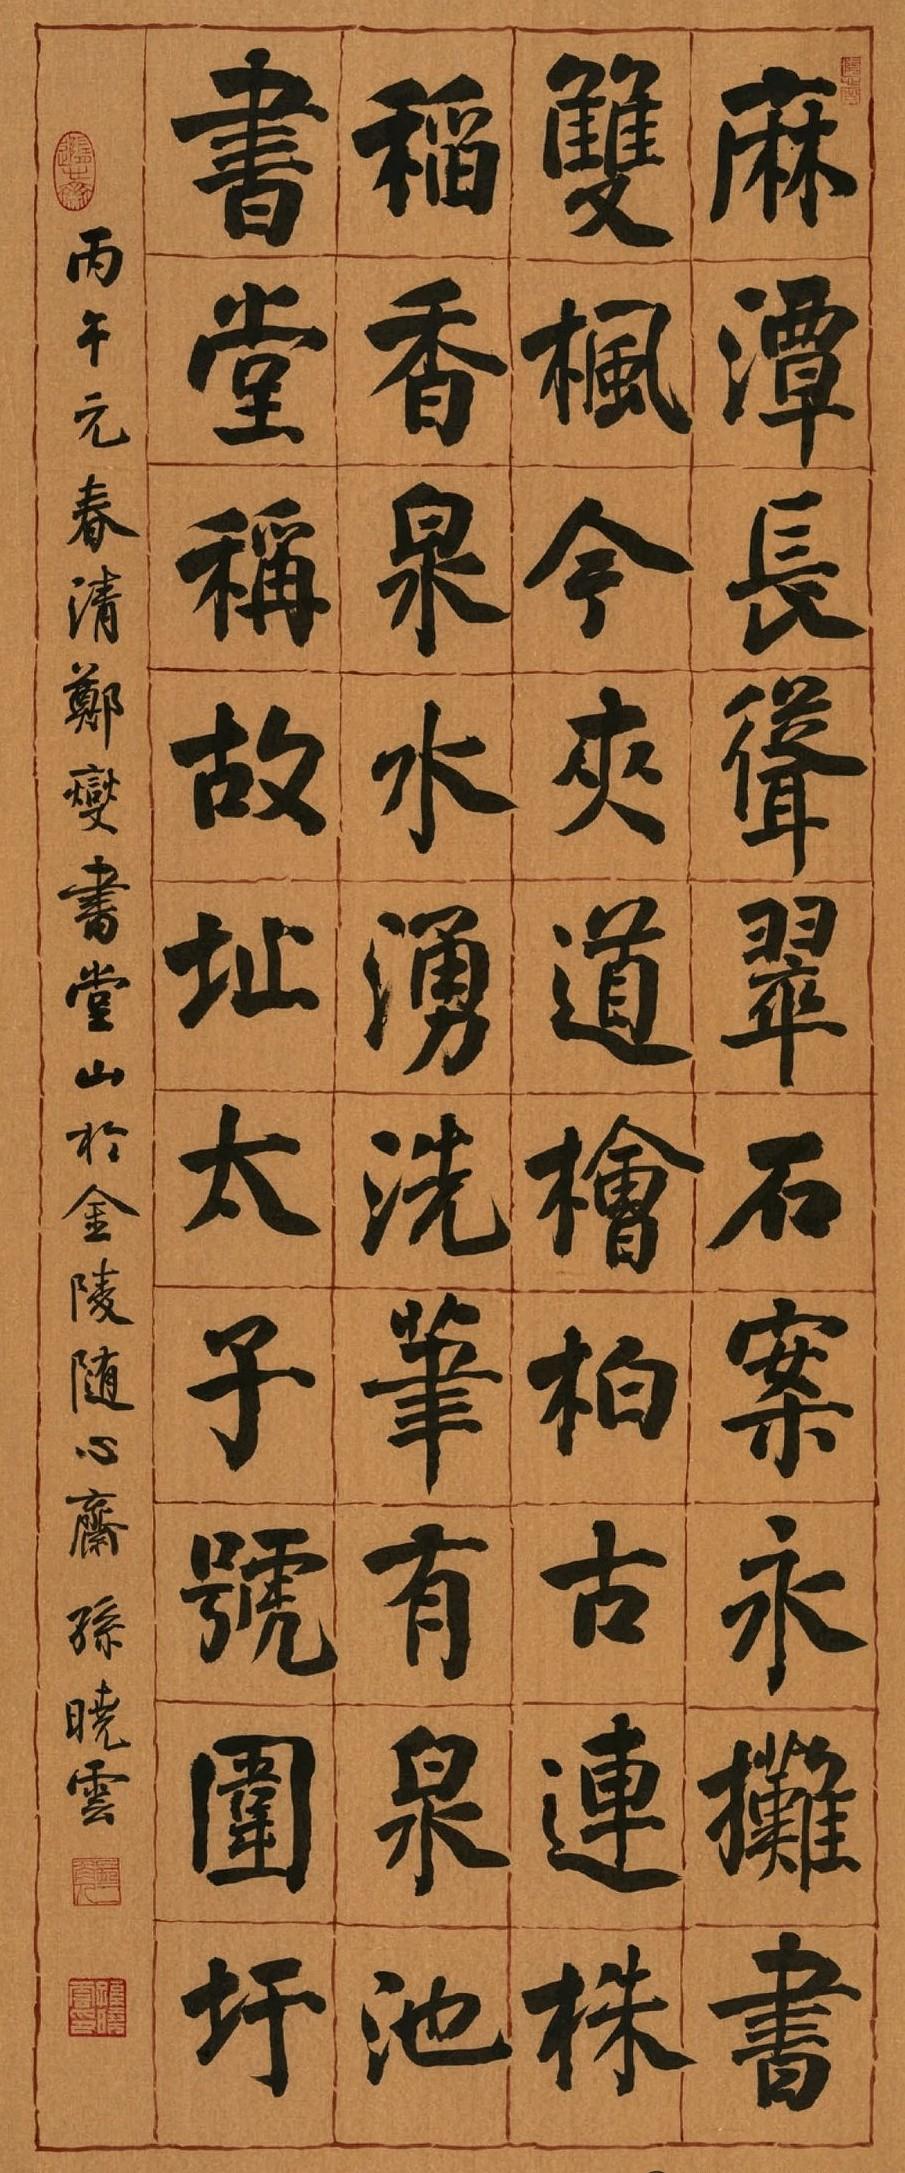 麻潭長聳翠石案永攤書
雙楓今夾道檜柏古連株
稻香泉水湧洗筆有泉池
書堂稱故址太子號圍圩
丙午元春清鄭燮書堂山於金陵随心齋 孫曉雲